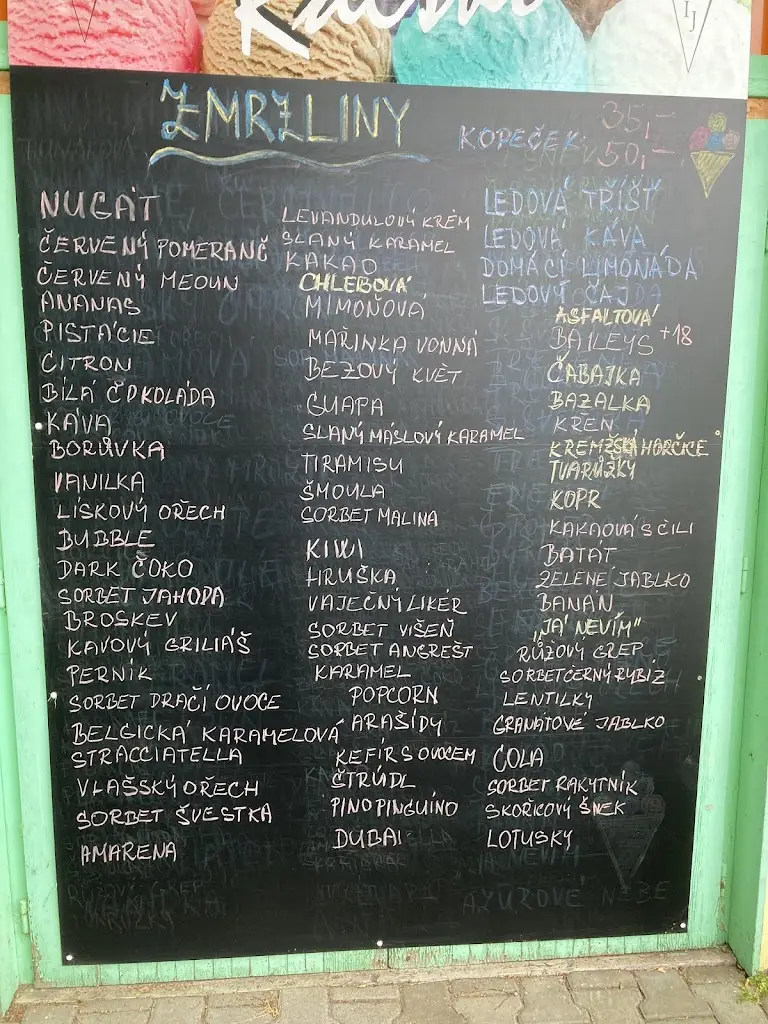 ZMRZLINY
KOPEČEK 35,-
50,-
NUGÁT
ČERVENÝ POMERANČ
ČERVENÝ MELOUN
ANANAS
PISTÁCIE
CITRON
BÍLÁ ČOKOLÁDA
KÁVA
BORŮVKA
VANILKA
LÍSKOVÝ OŘECH
BUBBLE
DARK ČOKO
SORBET JAHODA
BROSKEV
KÁVOVÝ GRILIÁŠ
PERNÍK
SORBET DRAČÍ OVOCE
BELGICKÁ KARAMELOVÁ
STRACCIATELLA
VLAŠSKÝ OŘECH
SORBET ŠVESTKA
AMARENA
LEVANDULOVÝ KRÉM
SLANÝ KARAMEL
KAKAO
CHLEBOVÁ
MIMOŇOVÁ
MAŘINKA VONNÁ
BEZOVÝ KVĚT
GUAPA
SLANÝ MÁSLOVÝ KARAMEL
TIRAMISU
ŠMOULA
SORBET MALINA
KIWI
HRUŠKA
VAJEČNÝ LIKÉR
SORBET VIŠEŇ
SORBET ANGREŠT
KARAMEL
POPCORN
ARAŠÍDY
KEFÍR S OVOCEM
ŠTRÚDL
PINO PINGUINO
DUBAI
LEDOVÁ TŘÍŠŤ
LEDOVÁ KÁVA
DOMÁCÍ LIMONÁDA
LEDOVÝ ČAJ
ASFALTOVÁ
BAILEYS +18
ČABAJKA
BAZALKA
KŘEN
KREMŽSKÁ HOŘČICE
TVARŮŽKY
KOPR
KAKAOVÁ S ČILI
BATAT
ZELENÉ JABLKO
BANÁN
„JÁ NEVÍM"
RŮŽOVÝ GREP
SORBET ČERNÝ RYBÍZ
LENTILKY
GRANÁTOVÉ JABLKO
COLA
SORBET RAKYTNÍK
SKOŘICOVÝ ŠNEK
LOTUSKY
AZUROVÉ NEBE